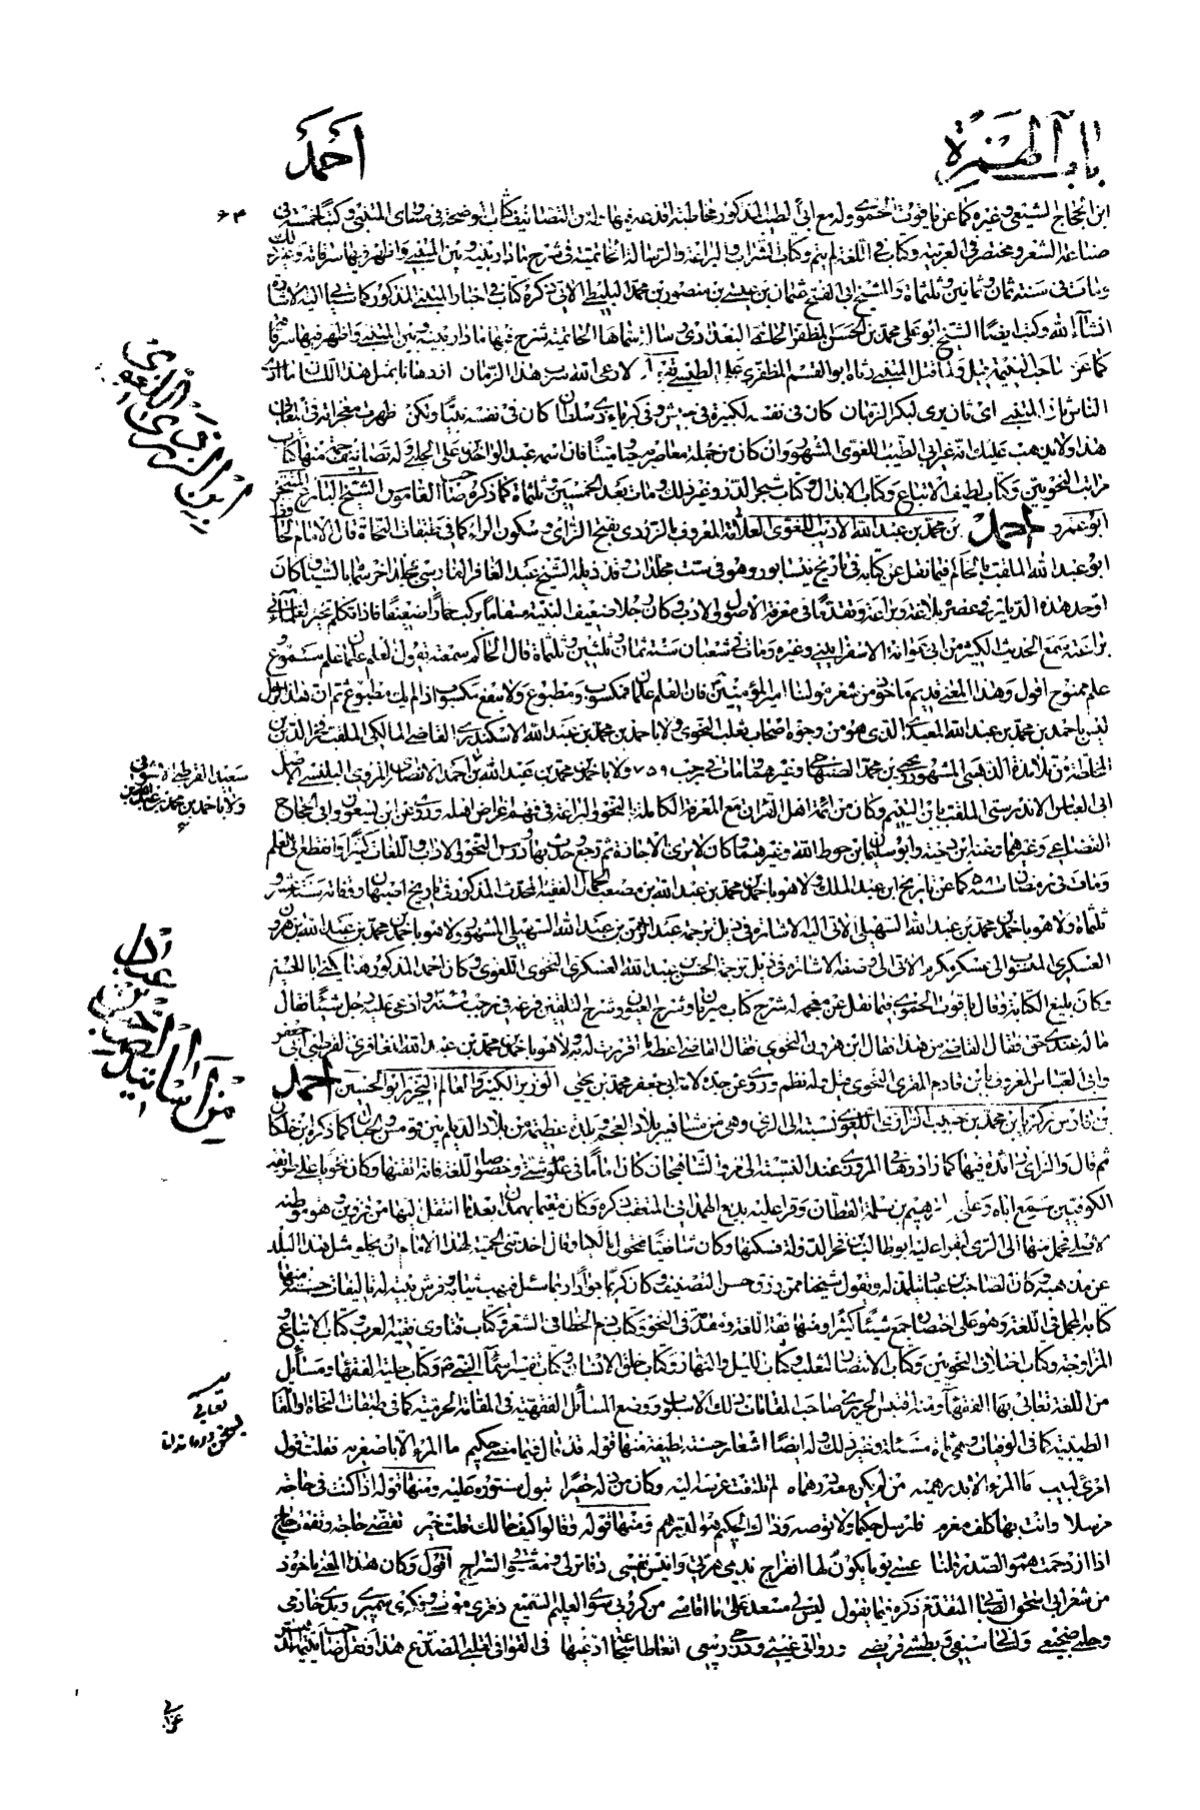 باب الهمزة
احمد
٦٣
ابن الحجاج الشيعي وغيره كما عن ياقوت الحموي وله مع أبي الطيب المذكور مخاطبة له من التصانيف كتاب الموضحة في مساوي المتنبي وكتاب
صناعة الشعر ومختصر في العربية وكتاب في اللغة لم يتم وكتاب الشراب والرسالة الحاتمية في شرح ما دار بينه وبين المتنبي واظهر فيها سرقاته وغير ذلك
ومات في سنة ثمان وثمانين وثلثمائة والشيخ ابى الفتح عثمان بن عيسى بن منصور بن محمد البليطي الاتى ذكره كتاب في اخبار المتنبي المذكور كما يجئ اليه الاشارة
انشاء الله وكتب ايضا الشيخ ابو على محمد بن الحسن المظفر الحاتمي البغدادي رسالة سماها الحاتمية شرح فيها ما دار بينه وبين المتنبي واظهر فيها سرقاته
كما عن صاحب اليتيمة قيل ولما قتل المتنبي رثاه ابو القسم المظفر بن علي الطبسي بقوله لا رعى الله سرب هذا الزمان اذ دهانا بمثل هذا اللسان ما رأى
الناس ثاني المتنبي اي ثان يرى لبكر الزمان كان في نفسه الكبيرة في جيش وفي كبرياء ذي سلطان كان في نفسه نبيا ولكن ظهرت معجزاته في المعاني
هذا ولا يذهب عليك انه غير ابي الطيب اللغوي المشهور وان كان من جملة معاصريه فان اسمه عبد الواحد بن علي الحلبي وله تصانيف جمة منها كتاب
مراتب النحويين وكتاب لطيف الاتباع وكتاب الابدال وكتاب شجر الدر وغير ذلك ومات بعد الخمسين وثلثمائة كما ذكره صاحب القاموس الشيخ البارع المتبحر
ابو عمرو احمد بن محمد بن عبد الله الاديب اللغوي العلامة المعروف بالزردي بفتح الزاى وسكون الراء كما في طبقات النحاة قال الامام الحافظ
ابو عبد الله الملقب بالحاكم فيما نقل عن كتابه في تاريخ نيسابور وهو في ست مجلدات وقد ذيله الشيخ عبد الغافر الفارسي بمجلد اخر سماه بالسياق كان
اوحد هذه الديار في عصره بلاغة وبراعة وتقدما في معرفة الاصول والادب وكان رجلا ضعيف البنية مسقاما يركب حمارا ضعيفا فاذا تكلم تحير العلماء في
براعته سمع الحديث الكثير من ابى عوانة الاسفرايني وغيره ومات في شعبان سنة ثمان وثلثين وثلثمائة قال الحاكم سمعته يقول العلم علمان علم مسموع و
علم ممنوح اقول وهذا المعنى قديم مأخوذ من شعر مولانا امير المؤمنين فان العلم علمان فمكسوب ومطبوع ولا ينفع مكسوب اذا لم يك مطبوع ثم ان هذا الرجل
ليس باحمد بن محمد بن عبد الله المعبدي الذي هو من وجوه اصحاب ثعلب النحوي ولا باحمد بن محمد بن عبد الله الاسكندري القاضي المالكي الملقب فخر الدين
من تلامذة الذهبي المشهور ويحيى بن محمد الصنهاجي وغيرهما ومات في رجب ٧٥٩ ولا باحمد بن محمد بن عبد الله بن احمد الانصاري البلنسي الاصل
ابى العباس الاندرشي الملقب بابن اليتيم وكان من ائمة اهل القران مع المعرفة الكاملة بالنحو والبراعة في فهم اغراض اهله وروى عن ابن يسعون وابى الحجاج
القضاعي وغيرهما وعنه ابن دحية وابو سليمان بن حوط الله وغيرهما وكان لا يرى الاجازة ثم رجع وحدث بها ودرس النحو والاداب واللغات كثيرا وانقطع الى العلم
ومات في رمضان سنة ٥٨١ كما عن تاريخ ابن عبد الملك ولا هو باحمد بن محمد بن عبد الله بن مصعب الجمال الفقيه المحدث المذكور في تاريخ اصبهان وفاته سنة عشر و
ثلثمائة ولا هو باحمد بن محمد بن عبد الله السهيلي الاتى اليه الاشارة في ذيل ترجمة عبد الرحمن بن عبد الله السهيلي المشهور ولا هو باحمد بن محمد بن عبد الله بن هرون
العسكري المنسوب الى عسكر مكرم الاتى الى وصفه الاشارة في ذيل ترجمة الحسن بن عبد الله العسكري النحوي اللغوي وكان احمد المذكور هذا يكنى بابى الحسين
وكان بليغ الكتابة وقال ياقوت الحموي فيما نقل عن معجمه له شرح كتاب مبرمان وشرح العيون وشرح التلقين فرغ منه في رجب وادعى عليه رجل شيئا فقال
ما له عندي حق فقال القاضي من هذا فقال ابن هرون النحوي فقال القاضي اعطه ما اقررت له به ولا هو باحمد بن محمد بن عبد الله المعافري القرطبي ابى جعفر
وابى العباس المعروف بابن قادم المقرى النحوي قيل له نظم وروى عن جده لامه ابي جعفر محمد بن يحيى الوزير الكبير والعالم النحرير ابو الحسين احمد
بن فارس بن زكريا بن محمد بن حبيب الرازي اللغوي نسبته الى الري وهي من مشاهير بلاد العجم وبلدة عظيمة من بلاد الديلم بين قومس والجبال كما ذكره ابن خلكان
ثم قال والزاي زائدة فيها كما زادوها في المروزي عند النسبة الى مرو الشاهجان كان اماما في علوم شتى وخصوصا اللغة فانه اتقنها وكان نحويا على طريقة
الكوفيين سمع اباه وعلي بن ابرهيم بن سلمة القطان وقرأ عليه بديع الهمداني المتعقب ذكره وكان مقيما بهمدان بعد ما انتقل اليها من قزوين هو موطنه
الاصلي فحمل منها الى الري ليقرأ عليه ابو طالب بن فخر الدولة فسكنها وكان شافعيا فتحول مالكيا وقال اخذتني الحمية لهذا الامام ان يخلو مثل هذا البلد
عن مذهبه وكان الصاحب بن عباد يتلمذ له ويقول شيخنا ممن رزق حسن التصنيف وكان كريما جوادا ربما سئل فيهب ثيابه وفرش بيته له تاليفات حسنة منها
كتابه المجمل في اللغة وهو على اختصاره جمع شيئا كثيرا ومنها فقه اللغة ومقدمة في النحو وكتاب ذم الخطأ في الشعر وكتاب فتاوى فقيه العرب وكتاب الاتباع و
المزاوجة وكتاب اختلاف النحويين وكتاب الانتصار لثعلب وكتاب الليل والنهار وكتاب خلق الانسان وكتاب تفسير اسماء النبي ص وكتاب حلية الفقهاء ومسائل
من اللغة تعانى بها الفقهاء ومنه اقتبس الحريري صاحب المقامات ذلك الاسلوب ووضع المسائل الفقهية في المقامة الحربية كما في طبقات النحاة والمقامة
الطيبية كما في الوفيات وهي مائة مسئلة وغير ذلك وله ايضا اشعار حسنة لطيفة منها قوله قد قال فيما مضى حكيم ما المرء الا باصغريه فقلت قول
امرئ لبيب ما المرء الا بدرهميه من لم يكن معه درهماه لم تلتفت عرسه اليه وكان من ذله حقيرا تبول سنوره عليه ومنها قوله اذا كنت في حاجة
مرسلا وانت بها كلف مغرم فارسل حكيما ولا توصه وذاك الحكيم هو الدرهم ومنها قوله وقالوا كيف حالك قلت خير تقضى حاجة وتفوت حاج
اذا ازدحمت هموم الصدر قلنا عسى يوما يكون لها انفراج نديمي هرتي وانيس نفسي دفاتر لي ومعشوقي السراج اقول وكان هذا المعنى ماخوذ
من شعر ابى اسحق الصابي المتقدم ذكره فيما يقول ليس لي مسعد على ما اقاسي من كروبي سوى العليم السميع دفتري مونسي وفكري سميري ويدي خادمي
وحلمي ضجيعي ولساني سيفي وبطشي قريضي ودواتي غيثي ودرجي ربيعي
ابن الزردي اللغوي
سعيد القرطبي الاشوني
ولا باحمد بن محمد بن عبد الله
من اساتيد الصاحب بن عباد